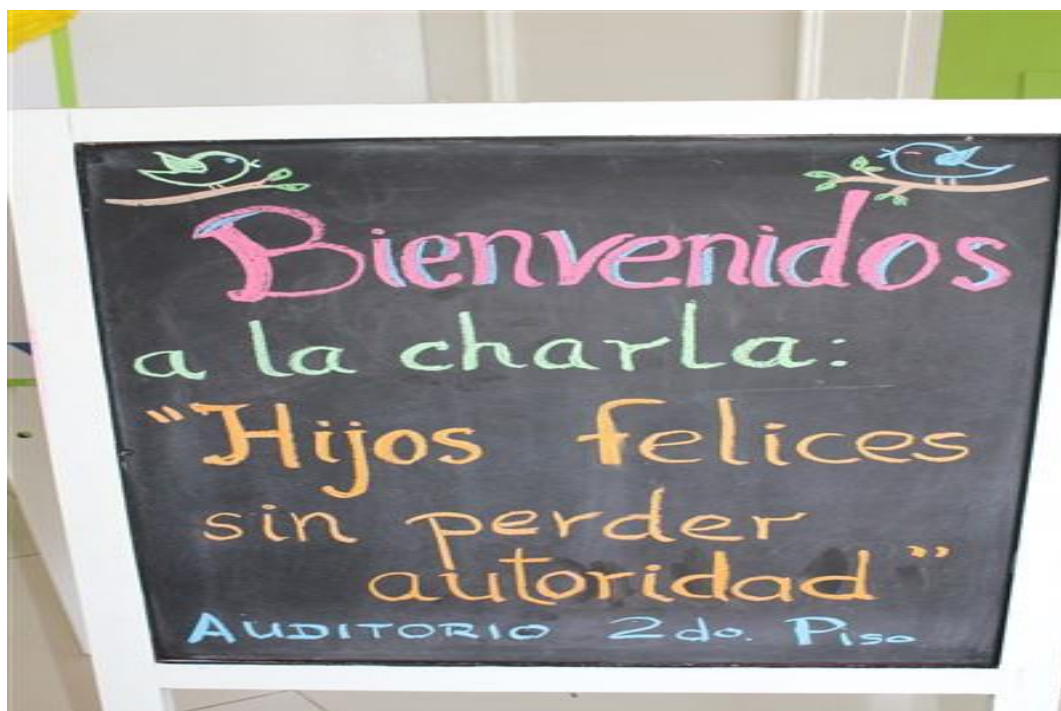 Bienvenidos
a la charla:
"Hijos felices
sin perder
autoridad"
AUDITORIO 2do. Piso